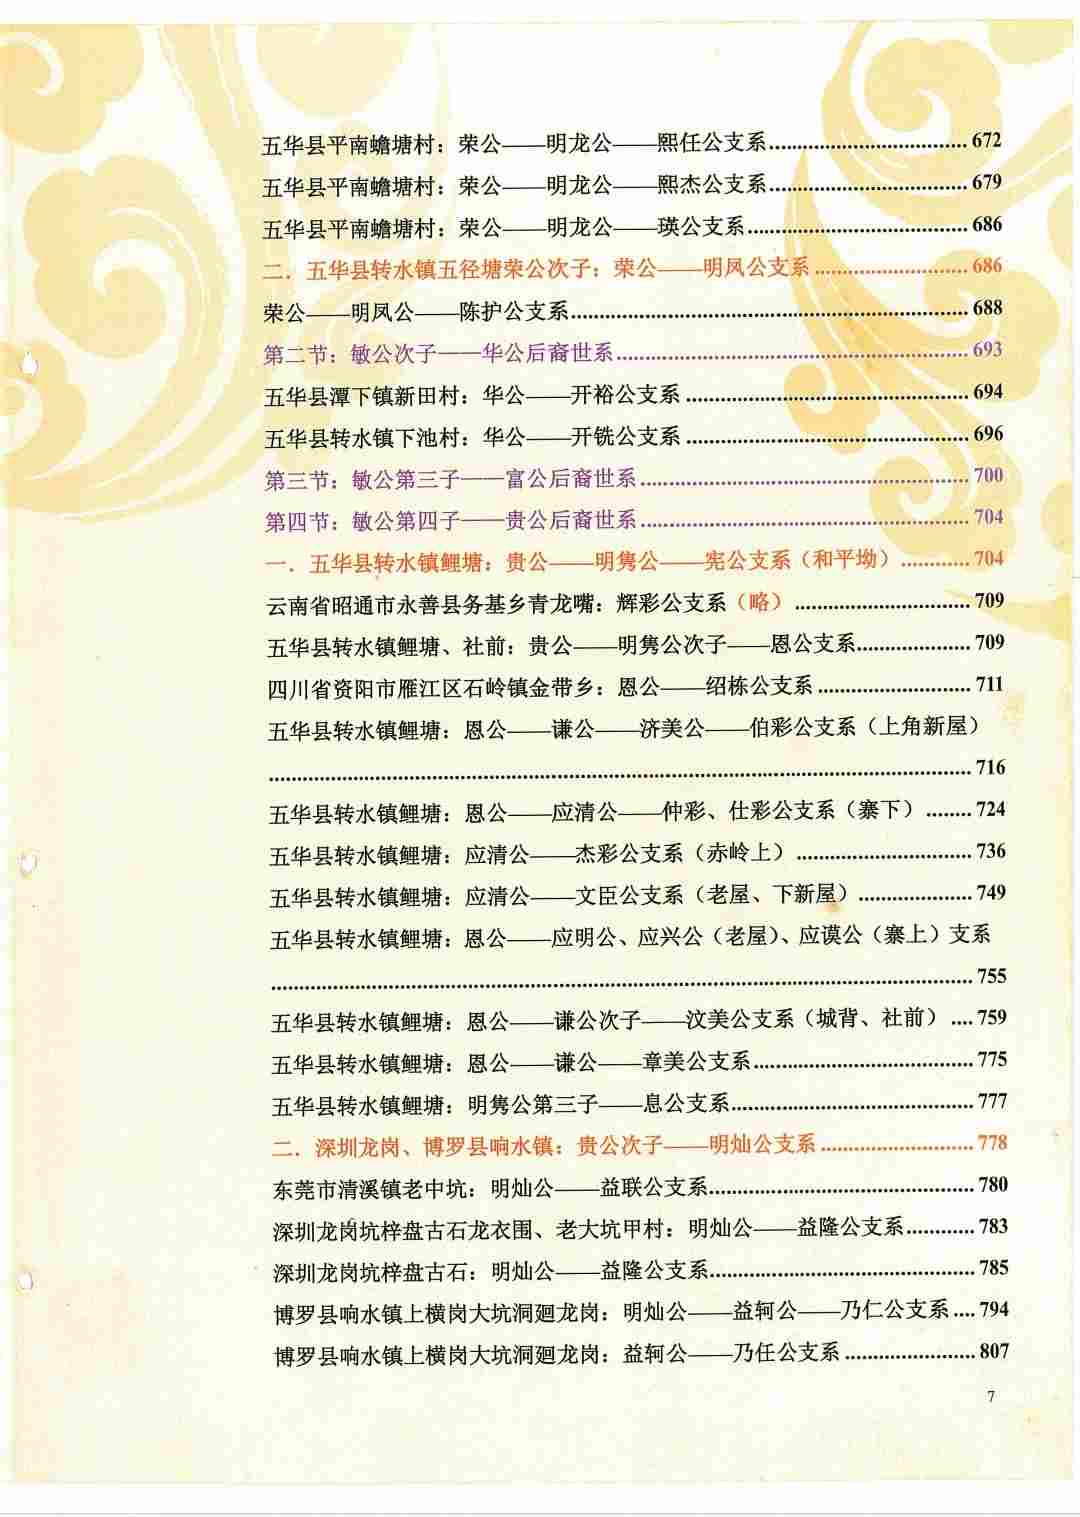 五华县平南蟾塘村：荣公——明龙公——熙任公支系.................................... 672
五华县平南蟾塘村：荣公——明龙公——熙杰公支系.................................... 679
五华县平南蟾塘村：荣公——明龙公——瑛公支系........................................ 686
二．五华县转水镇五径塘荣公次子：荣公——明凤公支系............................ 686
荣公——明凤公——陈护公支系........................................................................ 688
第二节：敏公次子——华公后裔世系................................................................ 693
五华县潭下镇新田村：华公——开裕公支系.................................................... 694
五华县转水镇下池村：华公——开铣公支系.................................................... 696
第三节：敏公第三子——富公后裔世系............................................................ 700
第四节：敏公第四子——贵公后裔世系............................................................ 704
一．五华县转水镇鲤塘：贵公——明隽公——宪公支系（和平坳）............ 704
云南省昭通市永善县务基乡青龙嘴：辉彩公支系（略）................................ 709
五华县转水镇鲤塘、社前：贵公——明隽公次子——恩公支系.................... 709
四川省资阳市雁江区石岭镇金带乡：恩公——绍栋公支系............................ 711
五华县转水镇鲤塘：恩公——谦公——济美公——伯彩公支系（上角新屋）
................................................................................................................................ 716
五华县转水镇鲤塘：恩公——应清公——仲彩、仕彩公支系（寨下）........ 724
五华县转水镇鲤塘：应清公——杰彩公支系（赤岭上）................................ 736
五华县转水镇鲤塘：应清公——文臣公支系（老屋、下新屋）.................... 749
五华县转水镇鲤塘：恩公——应明公、应兴公（老屋）、应谟公（寨上）支系
................................................................................................................................ 755
五华县转水镇鲤塘：恩公——谦公次子——汶美公支系（城背、社前）.... 759
五华县转水镇鲤塘：恩公——谦公——章美公支系........................................ 775
五华县转水镇鲤塘：明隽公第三子——息公支系............................................ 777
二．深圳龙岗、博罗县响水镇：贵公次子——明灿公支系............................ 778
东莞市清溪镇老中坑：明灿公——益联公支系................................................ 780
深圳龙岗坑梓盘古石龙衣围、老大坑甲村：明灿公——益隆公支系............ 783
深圳龙岗坑梓盘古石：明灿公——益隆公支系................................................ 785
博罗县响水镇上横岗大坑洞廻龙岗：明灿公——益轲公——乃仁公支系.... 794
博罗县响水镇上横岗大坑洞廻龙岗：益轲公——乃任公支系........................ 807
7